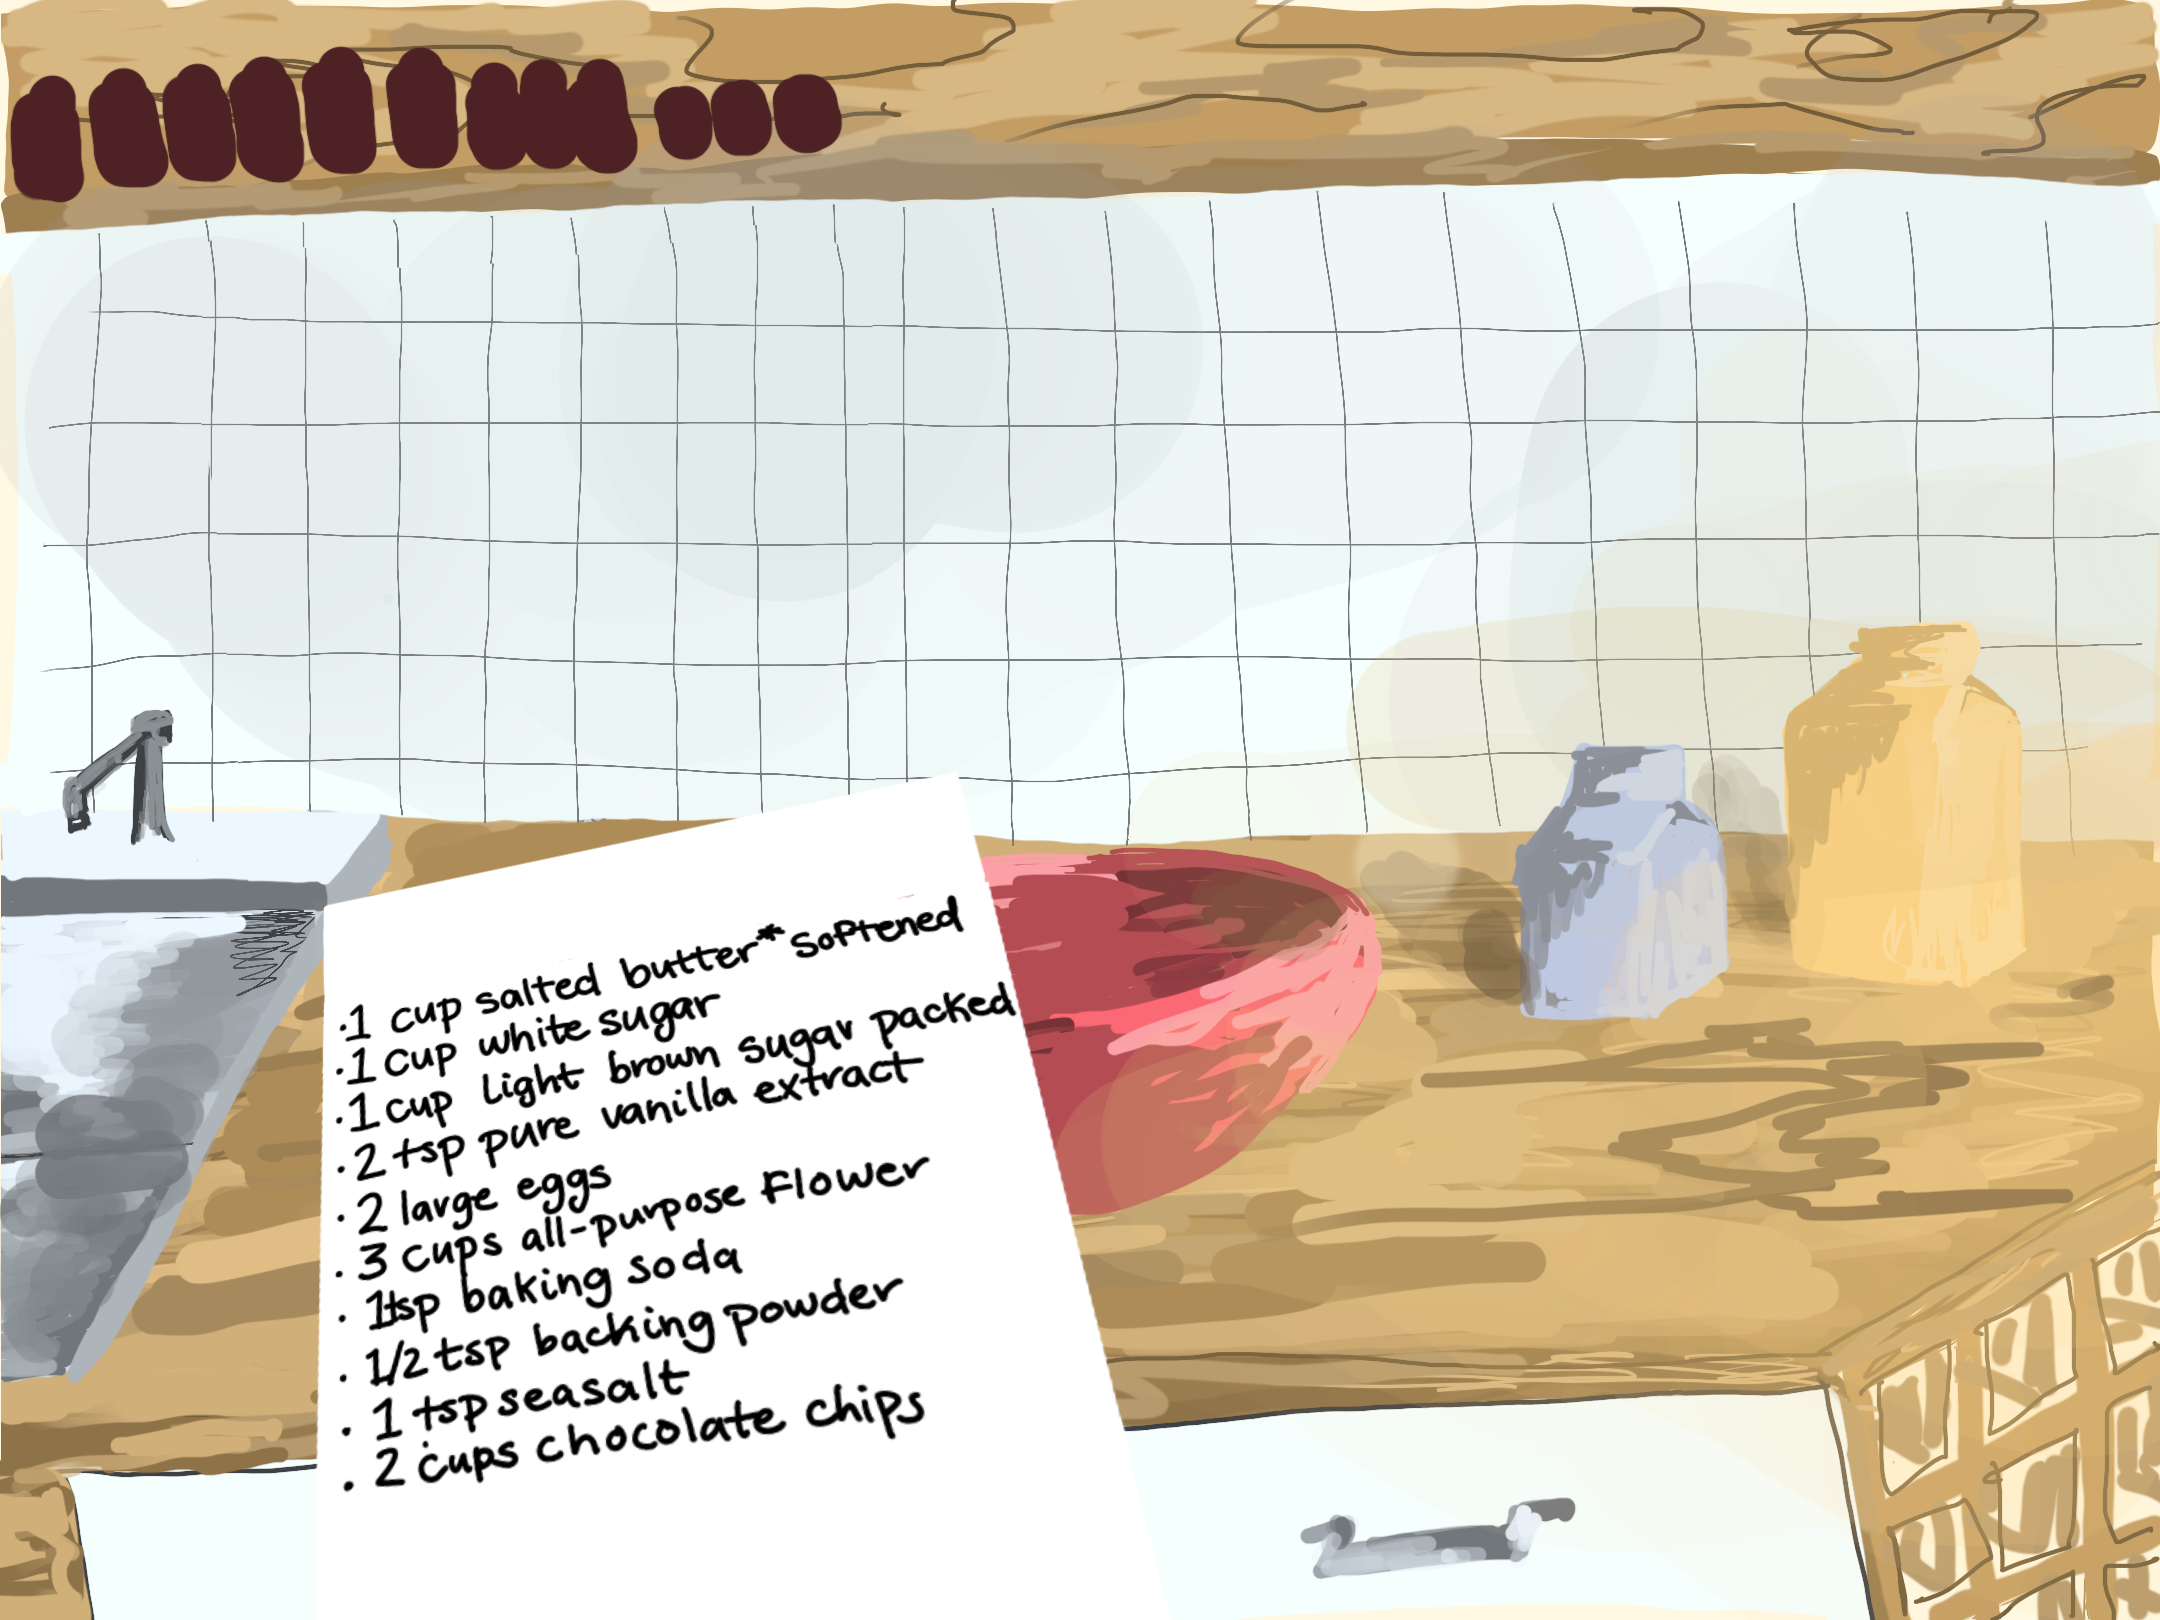 ·1 cup salted butter* softened
·1 cup white sugar
·1 cup Light brown sugar packed
·2 tsp pure vanilla extract
·2 large eggs
·3 cups all-purpose Flower
·1tsp baking soda
·1/2 tsp backing powder
·1 tsp seasalt
·2 cups chocolate chips